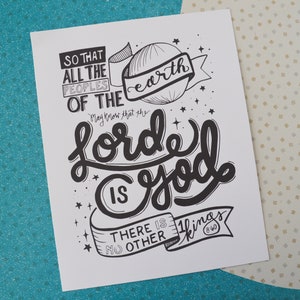 SO THAT
ALL THE
PEOPLES
OF THE earth
May Know that the
Lord
IS God
THERE IS
NO OTHER
1 kings
8:60